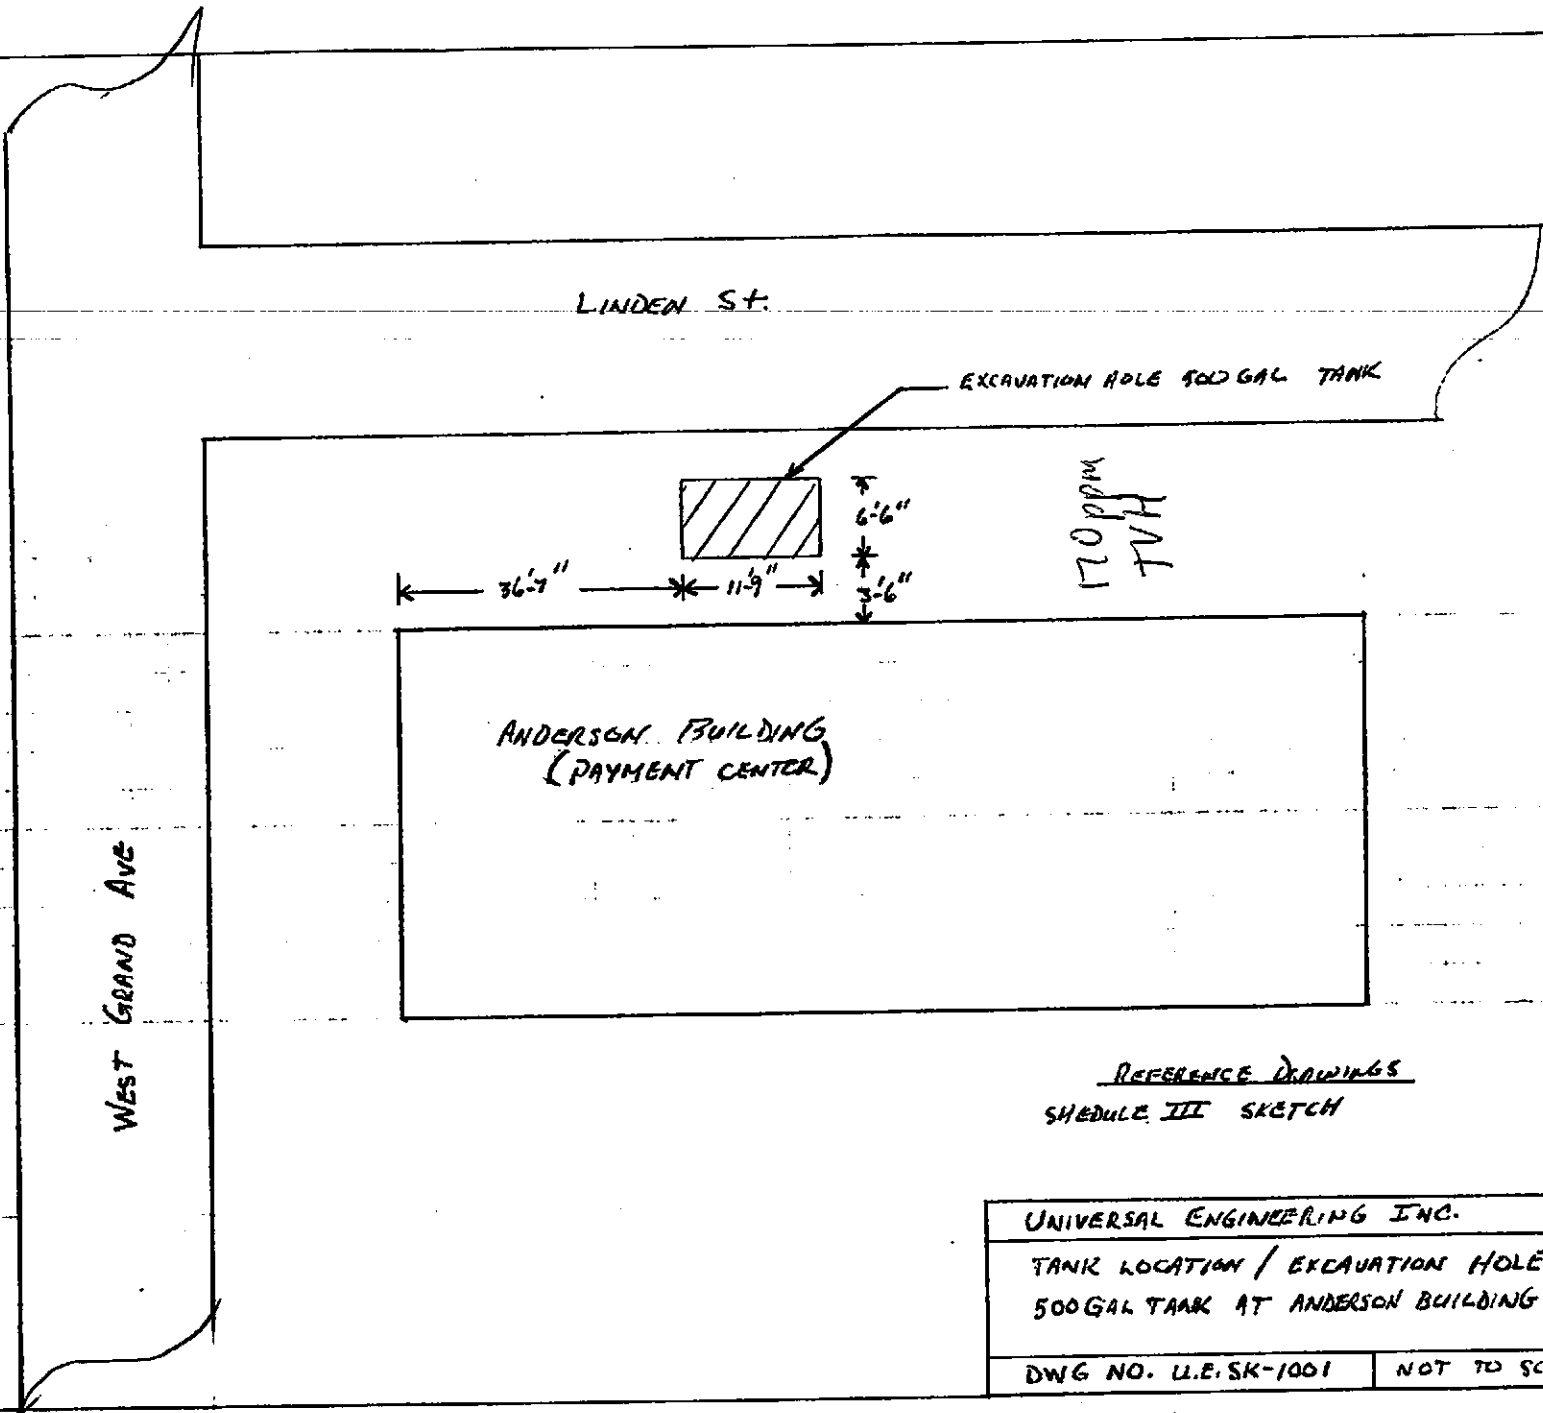 LINDEN St.
EXCAVATION HOLE 500 GAL TANK
6'-6"
120 ppm
TVH
36'-7"
11'-9"
3'-6"
ANDERSON BUILDING
(PAYMENT CENTER)
WEST GRAND AVE
REFERENCE DRAWINGS
SHEDULE III SKETCH
UNIVERSAL ENGINEERING INC.
TANK LOCATION / EXCAVATION HOLE
500 GAL TANK AT ANDERSON BUILDING
DWG NO. U.E. SK-1001
NOT TO SC